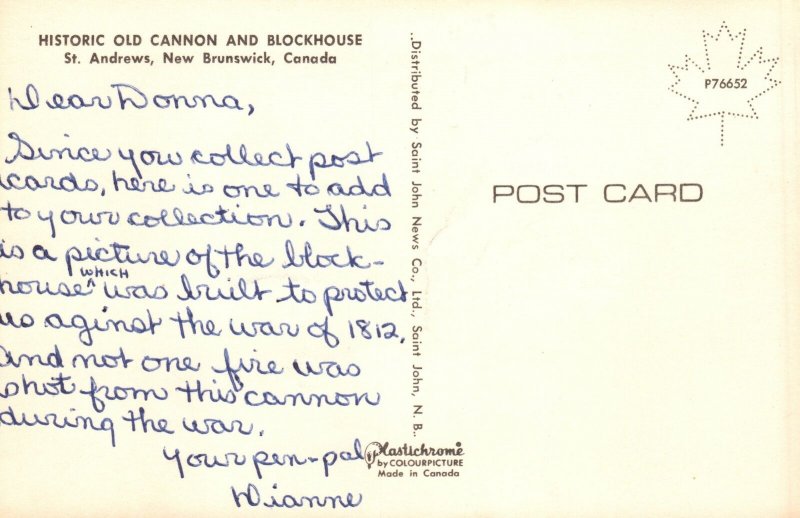 HISTORIC OLD CANNON AND BLOCKHOUSE
St. Andrews, New Brunswick, Canada
Dear Donna,
Since you collect post
cards, here is one to add
to your collection. This
is a picture of the block-
house ^ WHICH was built to protect
us aginst the war of 1812.
And not one fire was
shot from this cannon
during the war.
Your pen-pal
Dianne
..Distributed by Saint John News Co., Ltd., Saint John, N. B..
Plastichrome
by COLOURPICTURE
Made in Canada
P76652
POST CARD